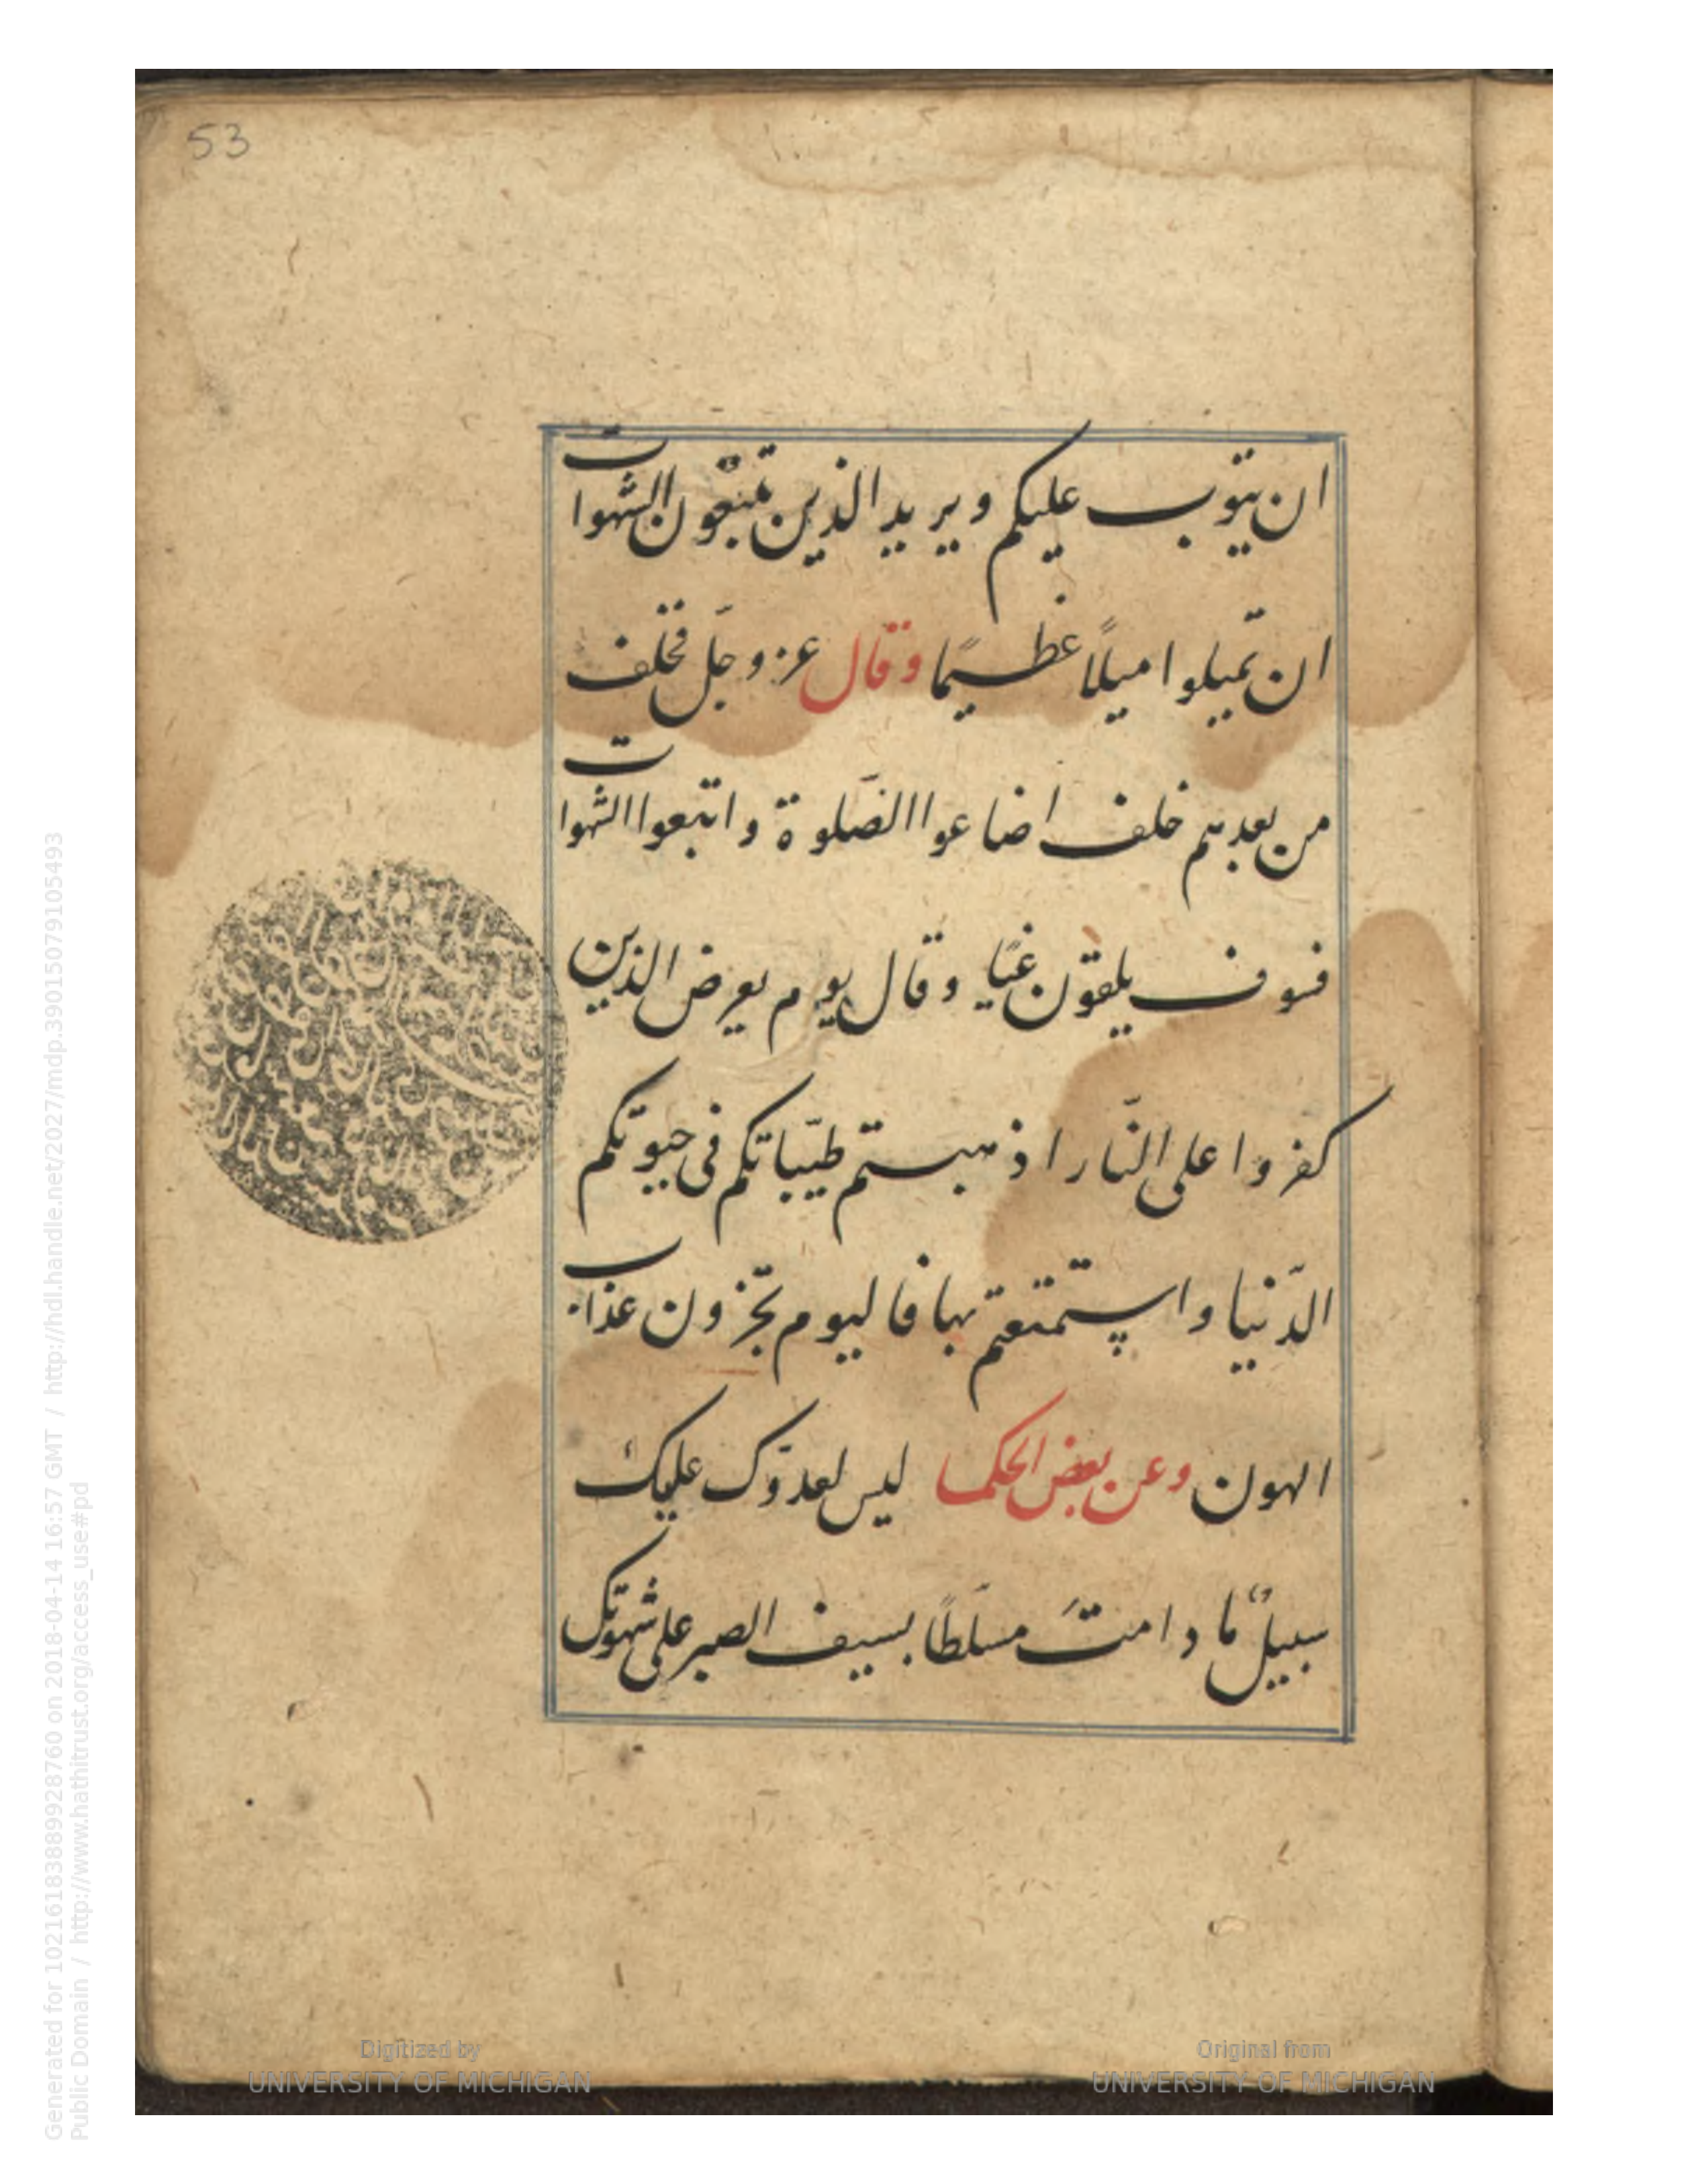 53
ان يتوب عليكم ويريد الذين يتبّعون الشهوات
ان تميلوا ميلًا عظيمًا وقال عز وجلّ فخلف
من بعدهم خلف اضاعوا الصّلوة واتبعوا الشهوات
فسوف يلقون غيًا وقال يوم يعرض الذين
كفروا على النّار اذهبتم طيّباتكم فى حيوتكم
الدّنيا واستمتعتم بها فاليوم تجزون عذاب
الهون وعن بعض الحكما ليس لعدوّك عليك
سبيلٌ ما دامتَ مسلّطًا بسيف الصبر على شهوتك
Digitized by
UNIVERSITY OF MICHIGAN
Original from
UNIVERSITY OF MICHIGAN
Generated for 102161838899928760 on 2018-04-14 16:57 GMT / http://hdl.handle.net/2027/mdp.39015079105493
Public Domain / http://www.hathitrust.org/access_use#pd